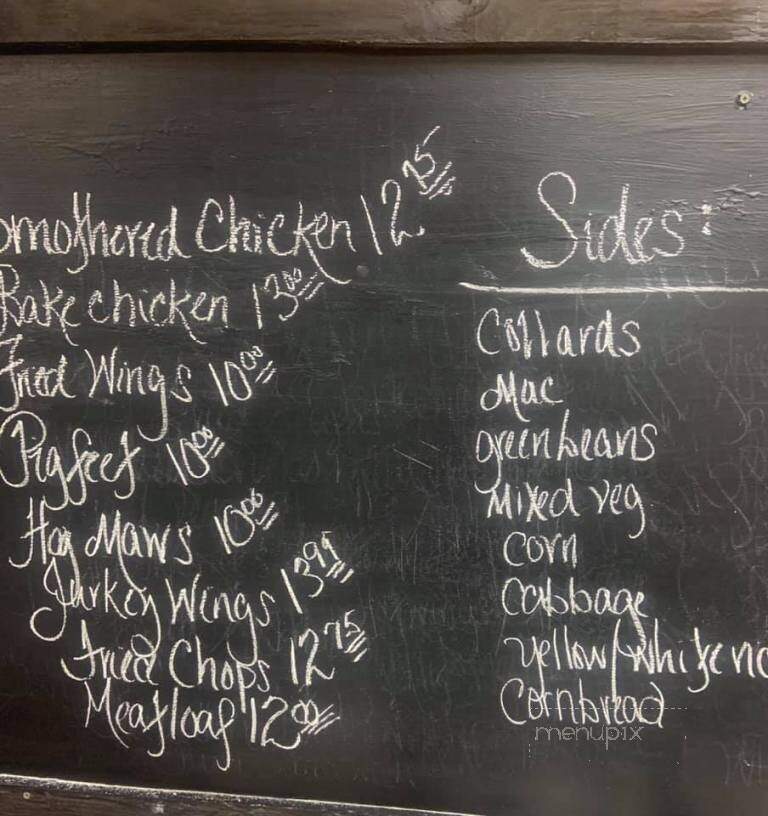 omothered Chicken 12.75
Bake chicken 13.00
Fried Wings 10.00
Pigfeet 10.00
Hog Maws 10.00
Turkey Wings 13.99
Fried Chops 12.75
Meatloaf 12.00
Sides:
Collards
Mac
greenbeans
Mixed veg
Corn
Cabbage
yellow/white
Cornbread
menupix